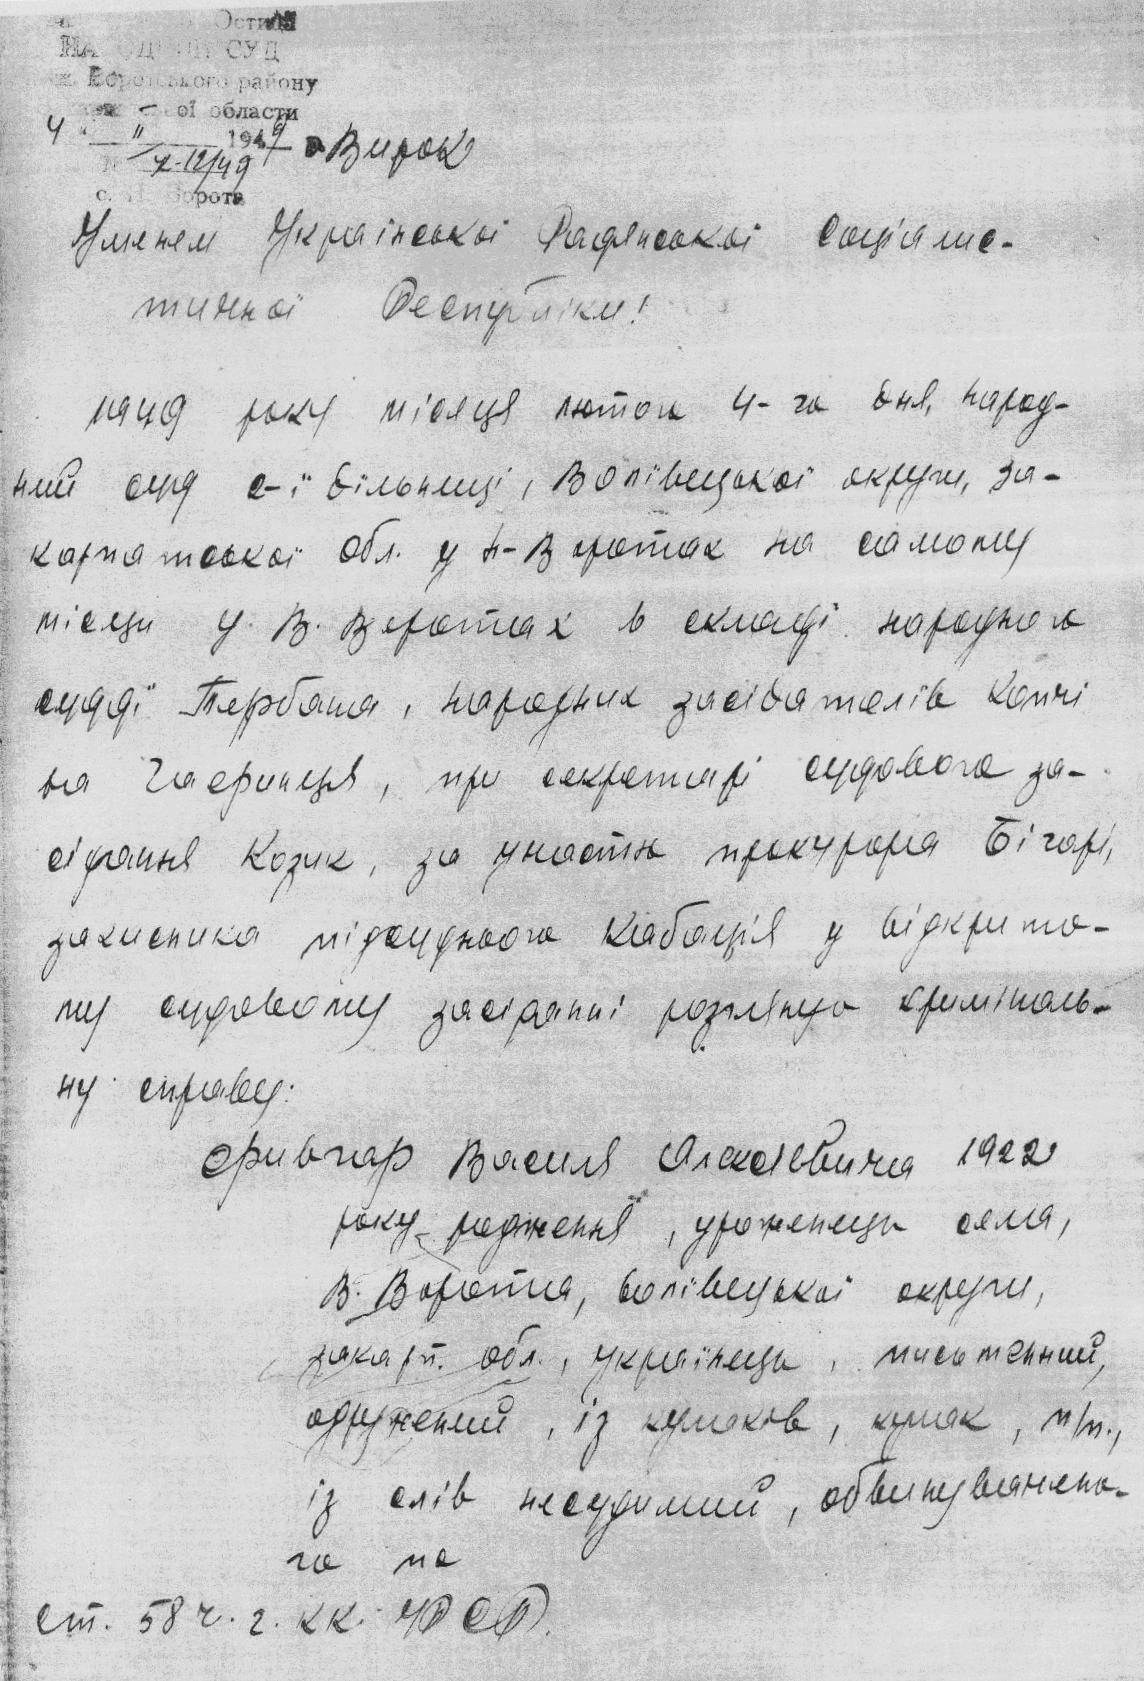 СУД
району
ої области
4 " II 1949
2-12/49
Вирок
Уменем Української Радянської Соціаліс-
тичної Республіки!
1949 року місяця лютого 4-го дня, народ-
ний суд с-ї дільниці, Волівецької округи, За-
карпатської обл. у Н-Воротах на самому
місци у В. Воротах в складі народного
судді Щербана, народних засідателів
та , при секретарі судового за-
сідання Козик, за участю прокурора Бігарі,
захисника підсудного Кабація у відкрито-
му судовому засіданні розглянув криміналь-
ну справу:
Фривгар Василя Алексієвича 1922
року родження, уроженець села,
В. Ворота, Волівецької округи,
закарп. обл., українець, письменний,
одружений, із кулаків, кулак, п/п.,
із слів несудимий, обвинуваченo-
го по
ст. 58 ч. 2. КК. УРСР.